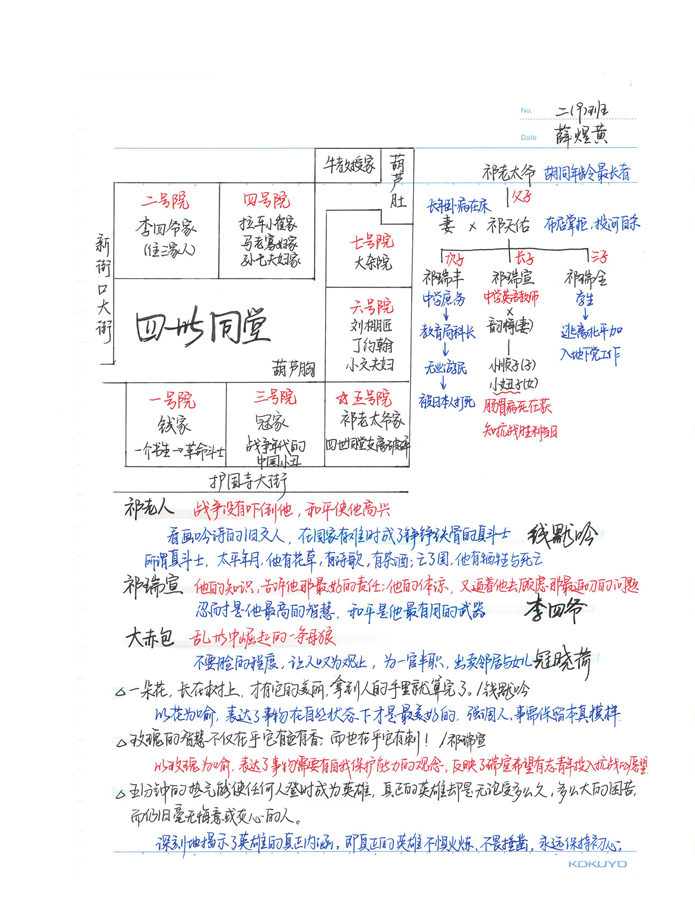 No. 二(9)班
Date 薛煜黄
牛教授家
葫芦肚
二号院
李四爷家
(住三家人)
四号院
拉车小崔家
马老寡妇家
孙七夫妇家
七号院
大杂院
新街口大街
四世同堂
六号院
刘棚匠
丁约翰
小文夫妇
葫芦胸
一号院
钱家
一个书生→革命斗士
三号院
冠家
战争年代的
中国小丑
☆五号院
祁老太爷家
四世同堂支离破碎
护国寺大街
祁老太爷 胡同年龄最长者
父子
长年困病在床
妻 × 祁天佑 布店掌柜,投河自杀
次子 长子 三子
祁瑞丰 祁瑞宣 祁瑞全
中学庶务
教育局科长
无业游民
被日本人打死
中学英语教师
×
韵梅(妻)
小顺子(子)
小妞子(女)
肠胃病死在获
知抗战胜利当日
学生
逃离北平加
入地下党工作
祁老人 战争没有吓倒他,和平使他高兴
看画吟诗的旧文人,在国家有难时成了铮铮铁骨的真斗士 钱默吟
所谓真斗士,太平年月,他有花草,有诗歌,有茶酒;亡了国,他有牺牲与死亡
祁瑞宣 他的知识,告诉他那最好的责任;他的体谅,又逼着他去顾虑那最迫切的问题
忍耐才是他最高的智慧,和平是他最有用的武器 李四爷
大赤包 乱世中崛起的一条母狼
不要脸的程度,让人叹为观止,为一官半职,出卖邻居与女儿 冠晓荷
△一朵花,长在树上,才有它的美丽,拿到人的手里就算完了。/钱默吟
以花为喻,表达了事物在自然状态下才是最美好的.强调人、事需保留本真模样.
△玫瑰的智慧不仅在乎它有色有香,而也在乎它有刺!/祁瑞宣
以玫瑰为喻,表达了事物需要有自我保护能力的观念,反映了瑞宣希望有志青年投入抗战的愿望
△五分钟的热气能使任何人登时成为英雄,真正的英雄却是无论受多么久,多么大的困苦,
而仍旧毫无悔意或灰心的人。
深刻地揭示了英雄的真正内涵,即真正的英雄不惧火炼、不畏捶凿,永远保持初心。
KOKUYO